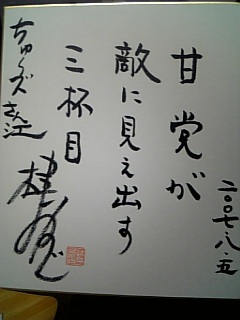 二〇〇七・八・五
甘党が
敵に見え出す
三杯目
ちゅーズさん江